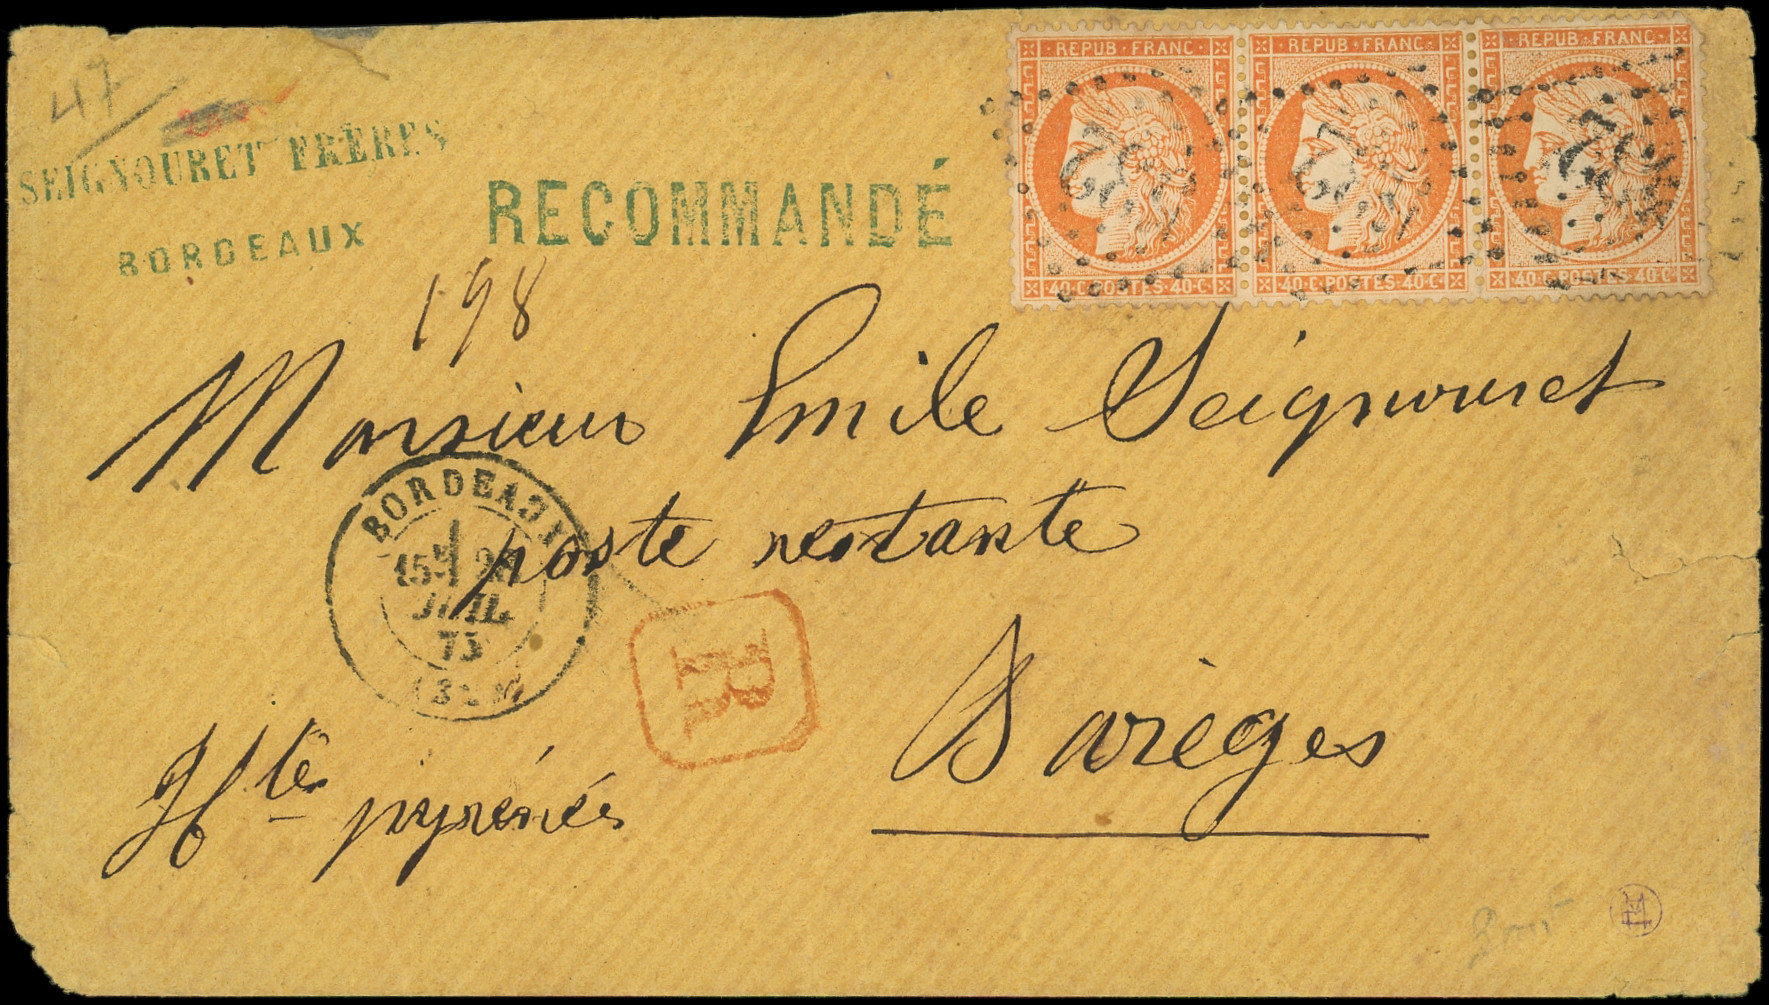 47
SEIGNOURET FRÈRES
BORDEAUX
RECOMMANDÉ
REPUB·FRANC·
40·C·POSTES·40·C·
REPUB·FRANC·
40·C·POSTES·40·C·
REPUB·FRANC·
40·C·POSTES·40·C·
198
Monsieur Emile Seignouret
poste restante
Barèges
Htes pyrénés
BORDEAUX
JUIL.
R